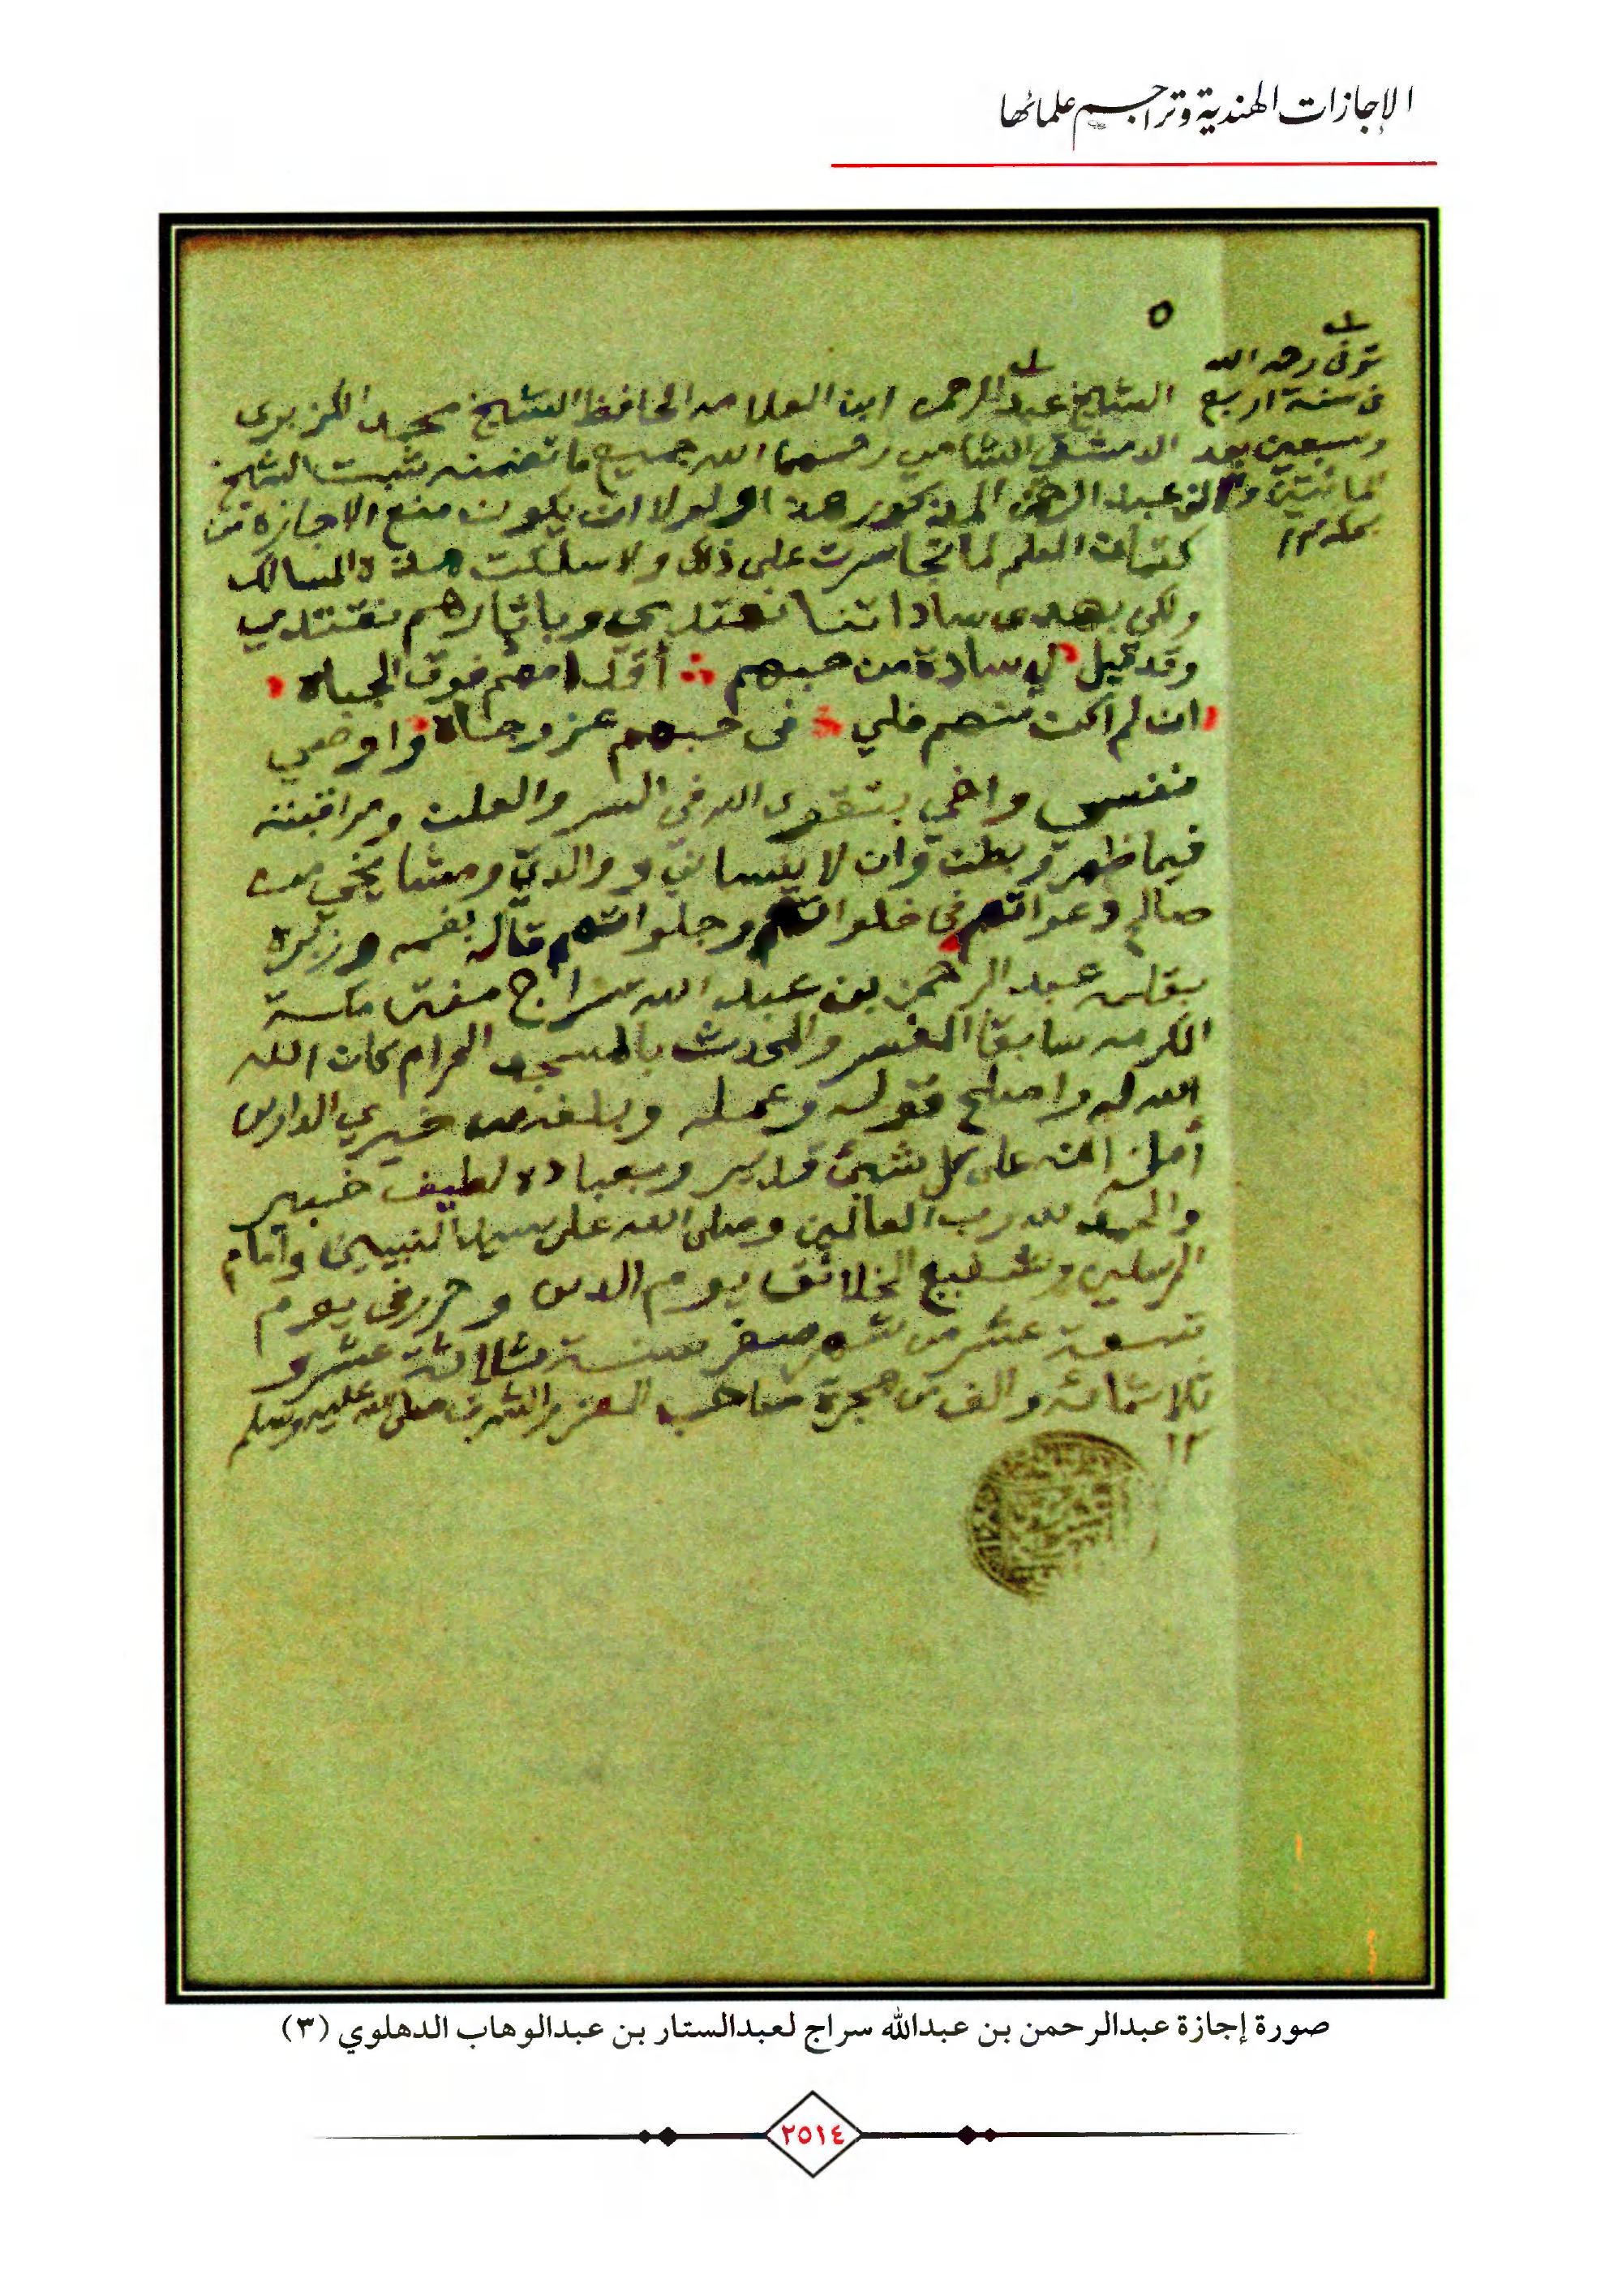 الإجازات الهندية وتراجم علمائها
٥
توفى رحمه الله
فى سنة اربع
وسبعين بعد
المائتين والف
بمكة ١٢
الشيخ عبد الرحمن ابن العلامه الحافظ الشيخ محمد الكزبرى
الدمشقى الشامي رحمهما الله جميع ما تضمنه ثبت الشيخ
عبد الرحمن المذكور هذا ولولا ان يكون منع الاجازة من
كتمان العلم لما تجاسرت على ذلك ولا سلكت هذه المسالك
ولكن بهدى ساداتنا نهتدي وباثارهم نقتدي
وقد قيل لي سادة من حبهم أقدامهم فوق الجباه
ان لم اكن منهم فلي فى حبهم عز وجاه واوصي
نفسي واخي بتقوى الله فى السر والعلن ومراقبته
فيما ظهر وبطن وان لا ينساني ووالدي ومشايخي من
صالح دعواتهم في خلواتهم وجلواتهم قاله بفمه وزبره
بقلمه عبد الرحمن بن عبد الله سراج مفتى مكة
المكرمه سابقا المفسر والمحدث بالمسجد الحرام كان الله
الله له واصلح قوله وعمله وبلغه من خيري الدارين
أمله انه على كل شئ قدير وبعباده لطيف خبير
والحمد لله رب العالمين وصلى الله على سيد النبيين وامام
المرسلين وشفيع الخلائق يوم الدين وحرر فى يوم
تسعة عشر من شهر صفر سنة ثلاثة عشر و
ثلاثمائه والف من هجرة صاحب العز والشرف صلى الله عليه وسلم
١٢
صورة إجازة عبدالرحمن بن عبدالله سراج لعبدالستار بن عبدالوهاب الدهلوي (٣)
٢٥١٤